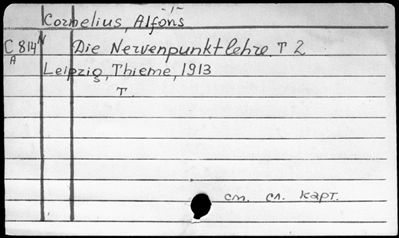 Cornelius, Alfons
C 814 N Die Nervenpunktlehre. T 2
A
Leipzig, Thieme, 1913
T.
см. сл. карт.